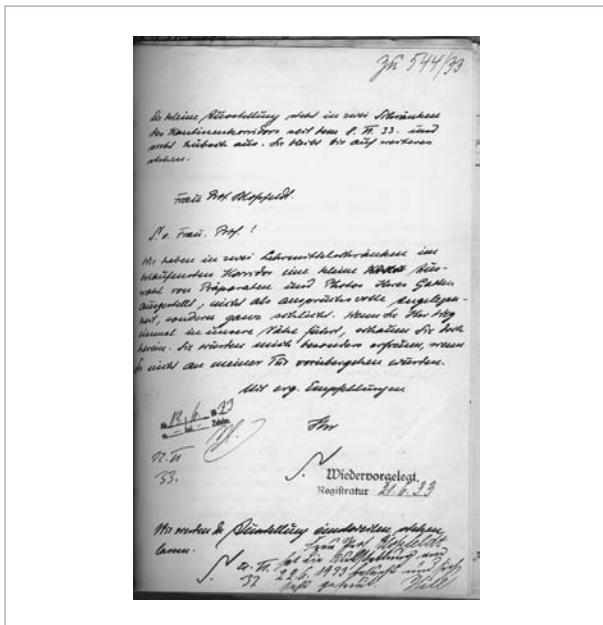 Zu 544/33
Die kleine Ausstellung steht in zwei Schränken
des Kantinenkorridors seit dem 8. VI. 33. und
sieht hübsch aus. Sie bleibt bis auf weiteres
stehen.
Frau Prof. Blossfeldt.
S. v. Frau. Prof.!
Wir haben in zwei Lehrmittelschränken im
Korridor eine kleine Aus-
wahl von Präparaten und Photos Ihres Gatten
ausgestellt, nicht als anspruchsvolle Angelegen-
heit, sondern ganz schlicht. Wenn Sie Ihr Weg
einmal in unsere Nähe führt, schauen Sie doch
herein. Sie würden mich besonders erfreuen, wenn
Sie nicht an meiner Tür vorübergehen würden.
Mit erg. Empfehlungen
Ihr
12. VI
33.
Wiedervorgelegt.
Registratur 21.6.33
Wir werden die Ausstellung einstweilen stehen
lassen.
Frau Prof. Blossfeldt
hat die Ausstellung am
22.6.1933 besucht und sich
sehr gefreut.